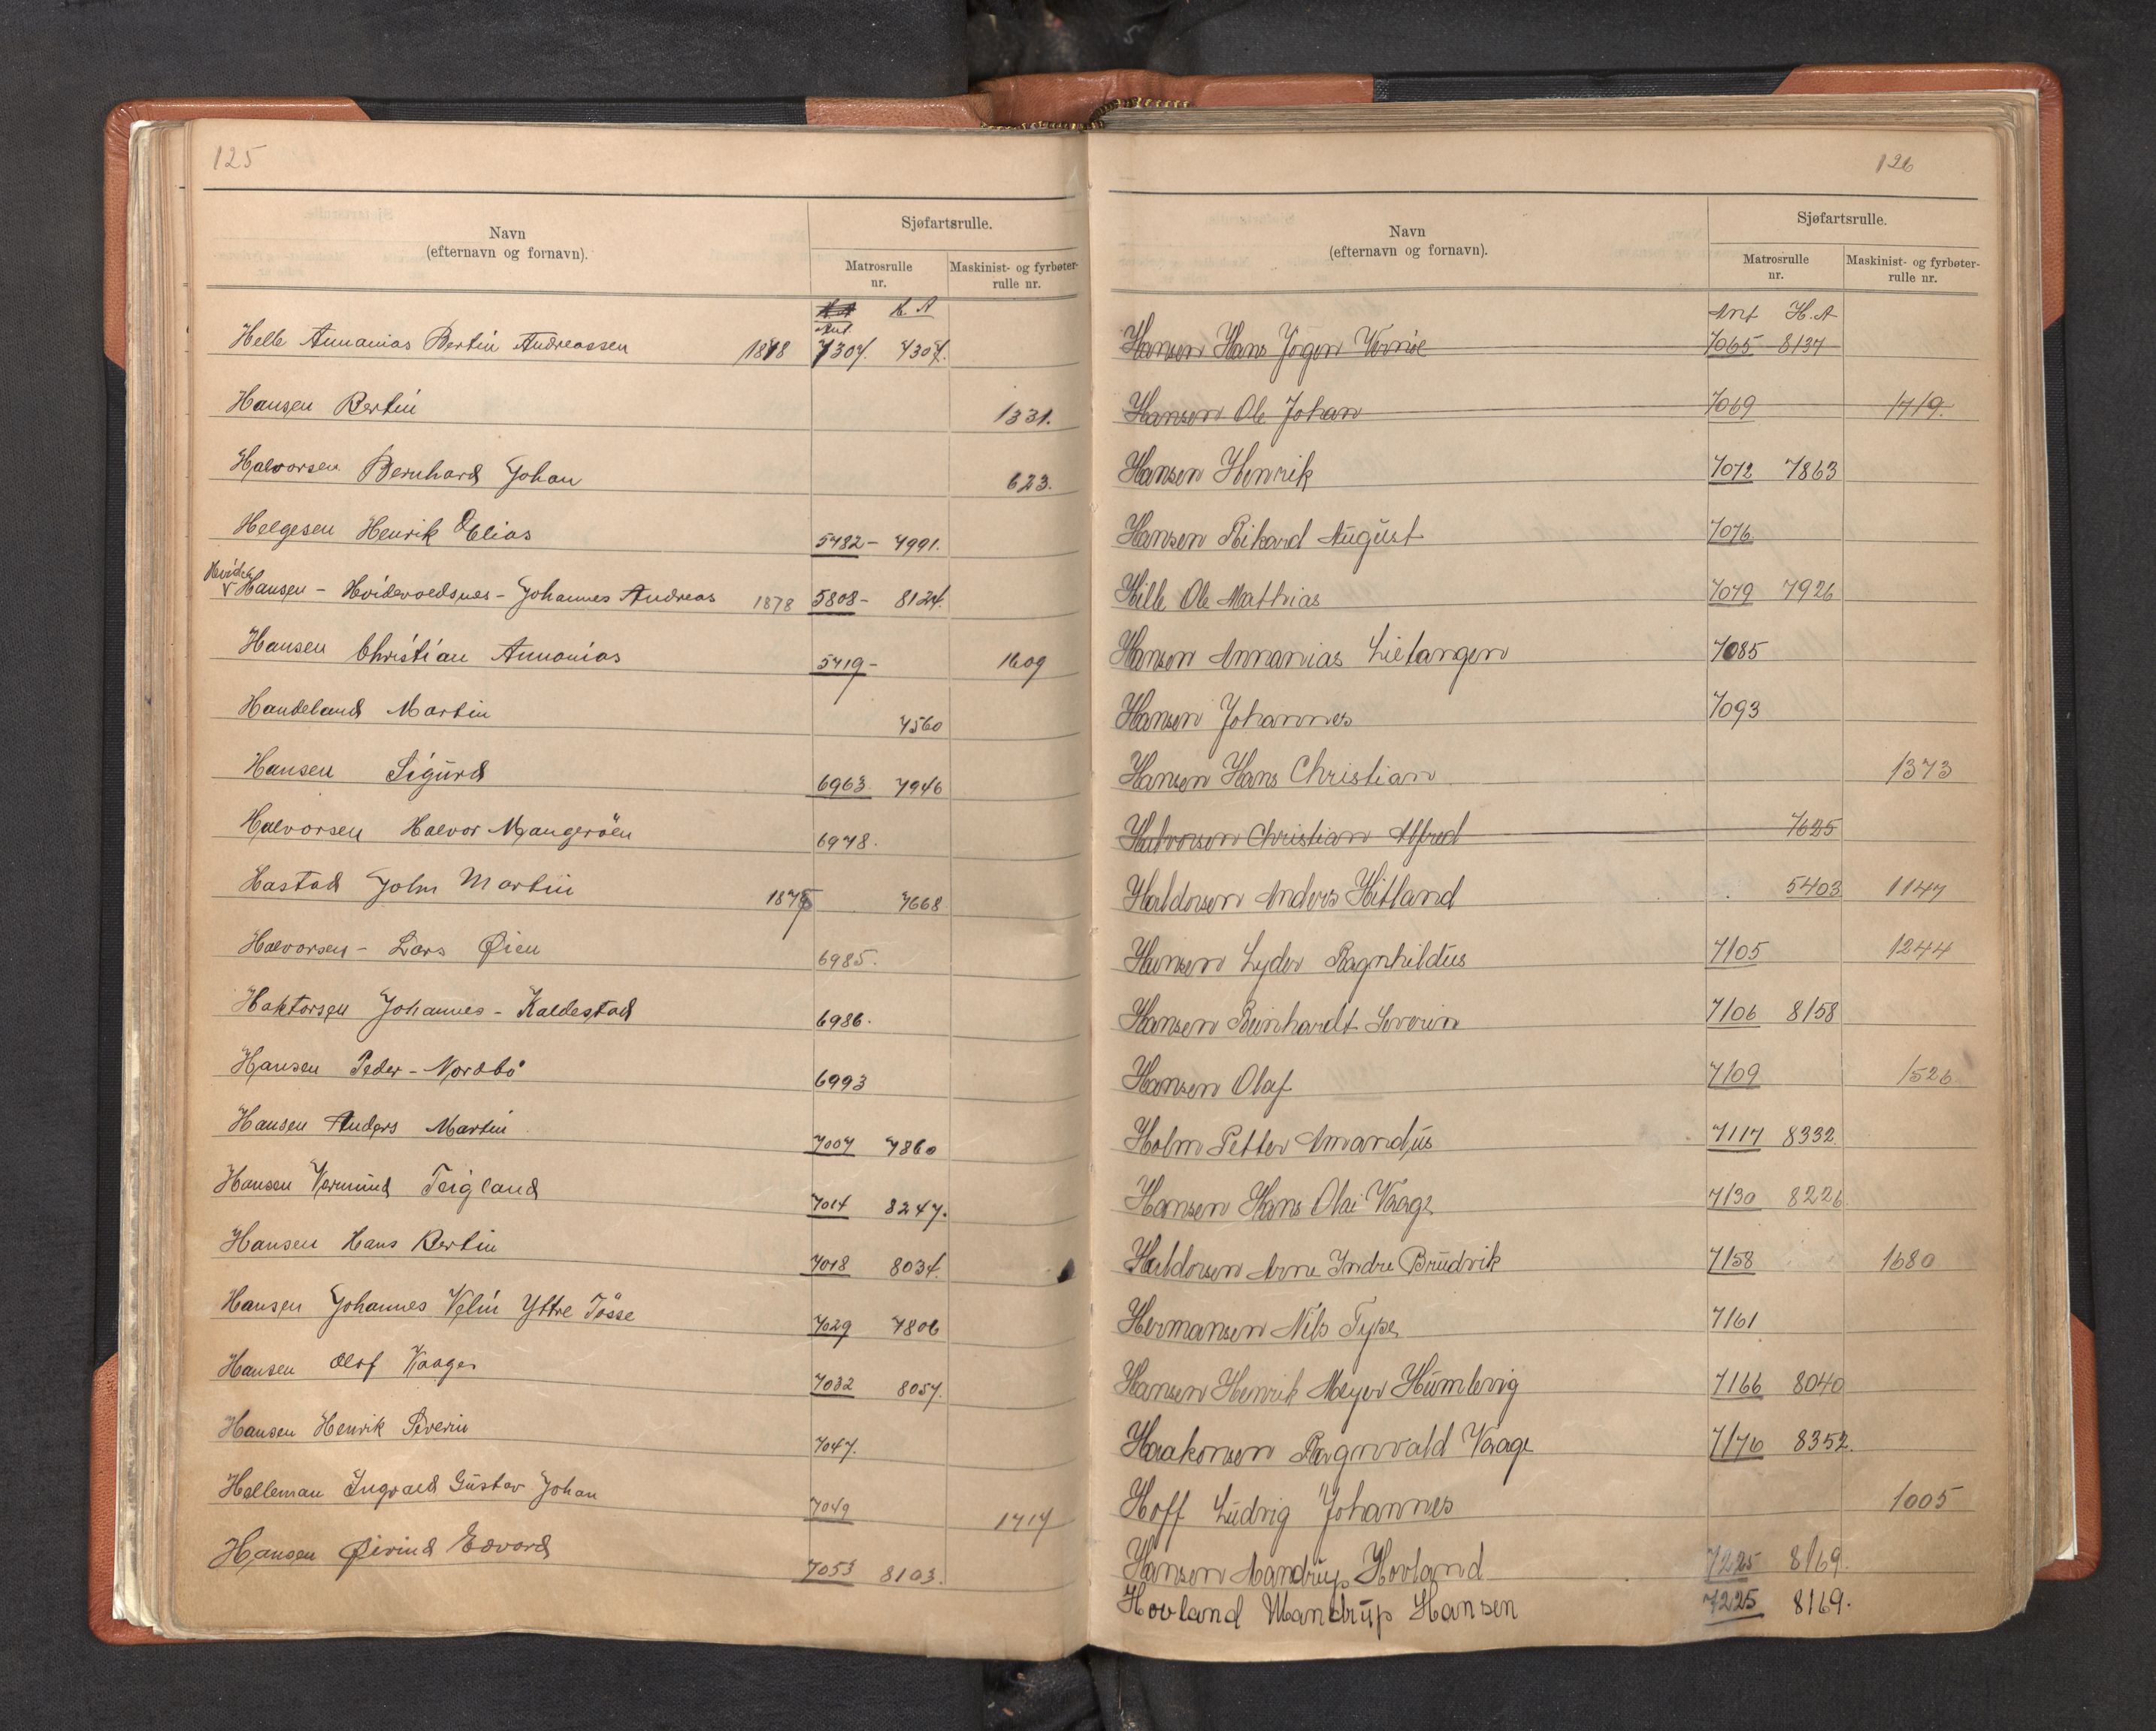 125
Navn
(efternavn og fornavn).
Sjøfartsrulle.
Matrosrulle
nr.
Maskinist- og fyrbøter-
rulle nr.
H. A
Ant.
Helle Annanias Bertin Andreassen 1878 7307. 7307.
Hansen Bertin 1331.
Halvorsen Bernhard Johan 623.
Helgesen Henrik Elias 5782 - 7991.
Hansen - Hvidevoldsnes - Johannes Andreas 1878 5808 - 8124.
Hansen Christian Annanias 5719 - 1609
Handeland Martin 7560
Hansen Sigurd 6963 7946
Halvorsen Halvor Mangeröen 6978.
Hastad John Martin 1878 7668
Halvorsen - Lars Øien 6985.
Haktorsen Johannes - Kaldestad 6986.
Hansen Peder - Nordbö 6993
Hansen Anders Martin 7007 7860
Hansen Vermund Teigland 7014 8247.
Hansen Hans Bertin 7018 8034.
Hansen Johannes Velin Yttre Tösse 7029 7806
Hansen Olaf Vaage 7032 8057.
Hansen Henrik Severin 7047.
Helleman Ingvald Gustav Johan 7049 1717
Hansen Øivind Edvard 7053 8103.
126
Navn
(efternavn og fornavn).
Sjøfartsrulle.
Matrosrulle
nr.
Maskinist- og fyrbøter-
rulle nr.
Ant H. A
Hansen Hans Jörgen Vernöe 7065 8137
Hansen Ole Johan 7069 1719.
Hansen Henrik 7072 7863
Hansen Rikard August 7076
Hille Ole Mathias 7079 7926
Hansen Annanias Lietangen 7085
Hansen Johannes 7093
Hansen Hans Christian 1373
Halvorsen Christian Alfred 7625
Haldorsen Anders Hitland 5403 1147
Hansen Lyder Ragnhildus 7105 1244
Hansen Reinhardt Severin 7106 8158
Hansen Olaf 7109 1526
Holm Petter Amandus 7117 8332
Hansen Hans Olai Vaage 7130 8226
Haldorsen Arne Indre Brudvik 7158 1680
Hermansen Nils 7161
Hansen Henrik Meyer Humlevig 7166 8040
Haakonsen Ragnvald Vaage 7176 8352.
Hoff Ludvig Johannes 1005
Hansen Mandrup Hovland 7225 8169.
Hovland Mandrup Hansen 7225 8169.